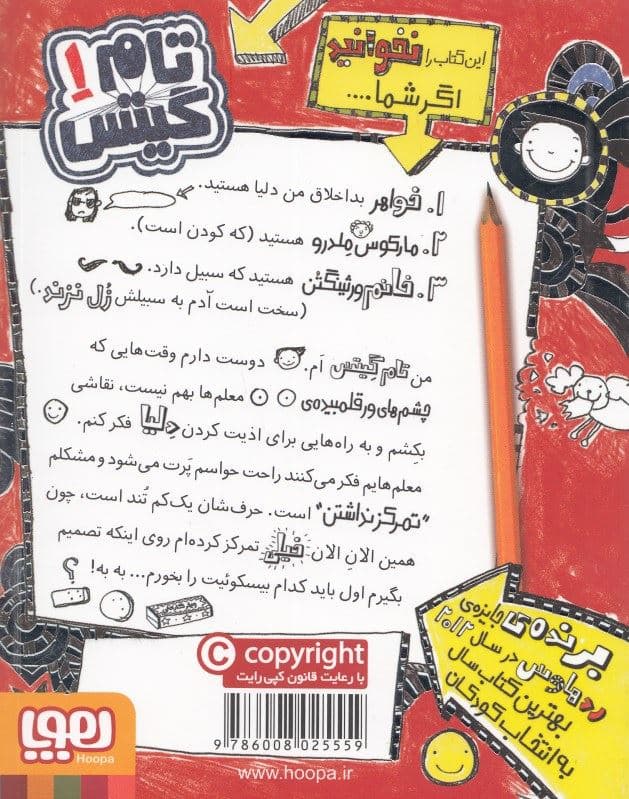 تام
گیتس!
این کتاب را نخوانید
اگر شما ....
۱. خواهر بداخلاق من دلیا هستید.
۲. مارکوس مِلدرو هستید (که کودن است).
۳. خانم ورثینگتُن هستید که سبیل دارد.
(سخت است آدم به سبیلش زُل نزند.)
من تام گیتس اَم. دوست دارم وقت‌هایی که
چشم‌های ورقلمبیده‌ی معلم‌ها بهم نیست، نقاشی
بکِشم و به راه‌هایی برای اذیت کردن دِلیا فکر کنم.
معلم‌هایم فکر می‌کنند راحت حواسم پَرت می‌شود و مشکلم
"تمرکز نداشتن" است. حرف‌شان یک‌کم تُند است، چون
همین الانِ الان خیلی تمرکز کرده‌ام روی اینکه تصمیم
بگیرم اول باید کدام بیسکوئیت را بخورم... به به!
؟
برنده‌ی جایزه‌ی
رد هاوس در سال ۲۰۱۲
بهترین کتاب سال
به انتخاب کودکان
© copyright
با رعایت قانون کپی رایت
9 786008 025559
هوپا
Hoopa
www.hoopa.ir